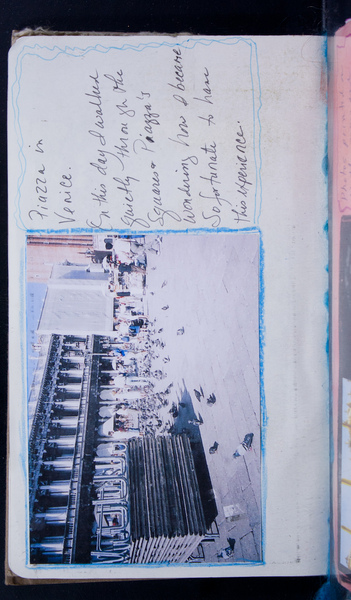 Piazza in
Venice.
On this day I walked
quietly through the
Squares & Piazza's
Wondering how I became
So fortunate to have
this experience.